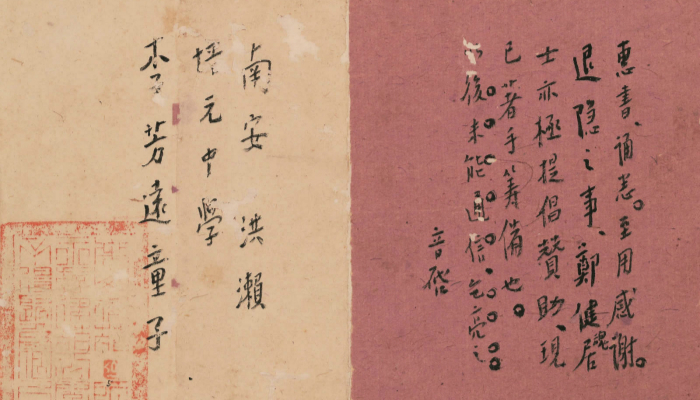 惠書、誦悉。至用感謝。
退隱之事、鄭健魂居
士亦極提倡贊助、現
已著手籌備也。
以後未能通信、乞亮之。
音啓
南安 洪瀨
培元中學
李芳遠童子